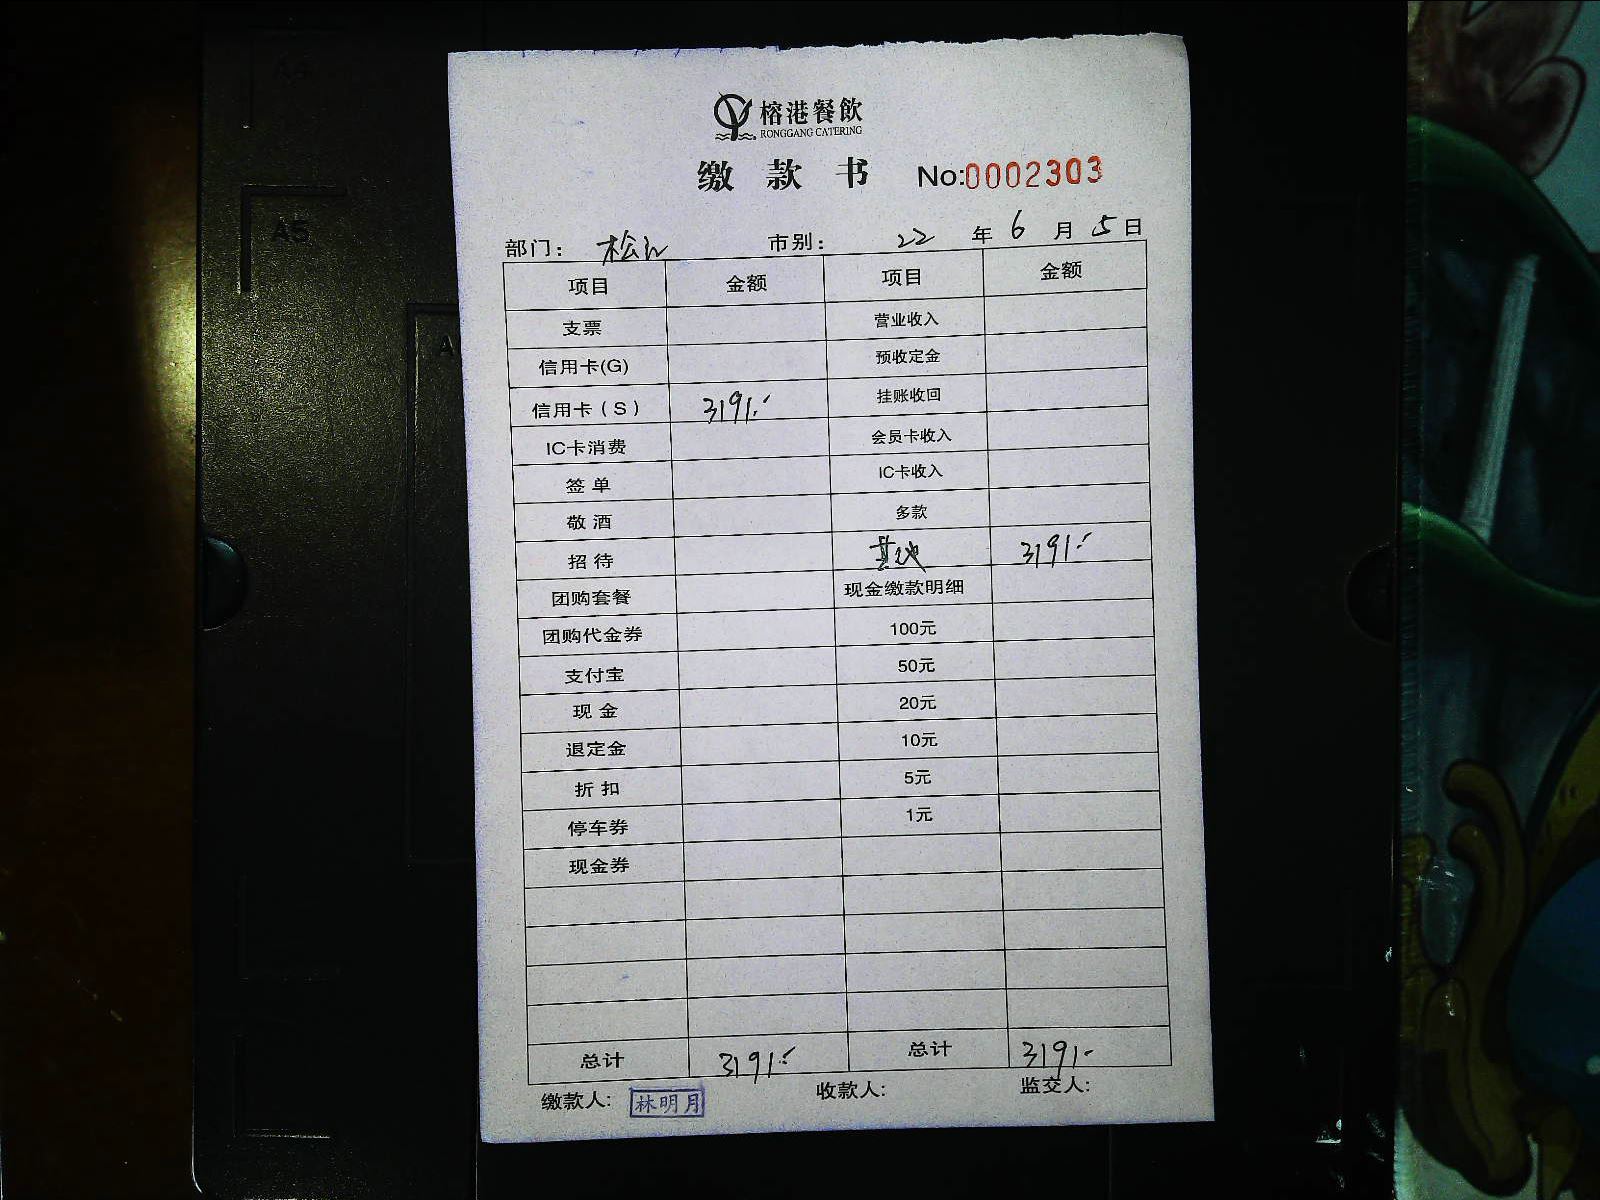 榕港餐飲
RONGGANG CATERING
缴款书 No:0002303
部门: 松江 市别: 22年6月5日
项目 金额 项目 金额
支票 营业收入
信用卡(G) 预收定金
信用卡(S) 3191.- 挂账收回
IC卡消费 会员卡收入
签单 IC卡收入
敬酒 多款
招待 其他 3191.-
团购套餐 现金缴款明细
团购代金券 100元
支付宝 50元
现金 20元
退定金 10元
折扣 5元
停车券 1元
现金券
总计 3191.- 总计 3191.-
缴款人: 林明月 收款人: 监交人:
A5